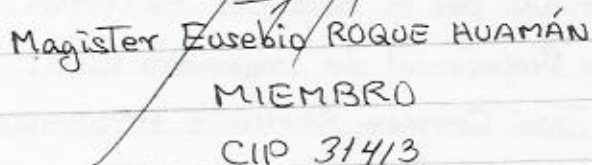 Magister Eusebio ROQUE HUAMÁN
MIEMBRO
CIP 31413